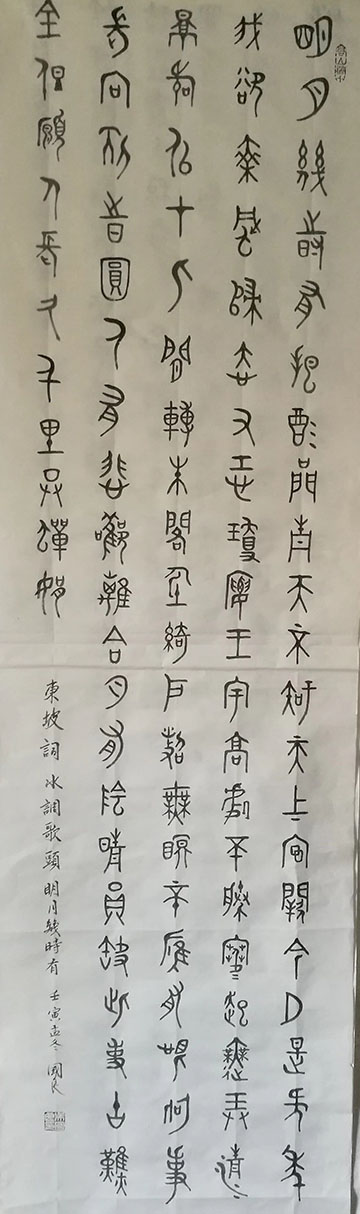 明月幾時有把酒問青天不知天上宮闕今夕是何年
我欲乘風歸去又恐瓊樓玉宇高處不勝寒起舞弄清
影何似在人間轉朱閣低綺戶照無眠不應有恨何事
長向別時圓人有悲歡離合月有陰晴圓缺此事古難
全但願人長久千里共嬋娟
東坡詞 水調歌頭 明月幾時有 壬寅孟冬 國